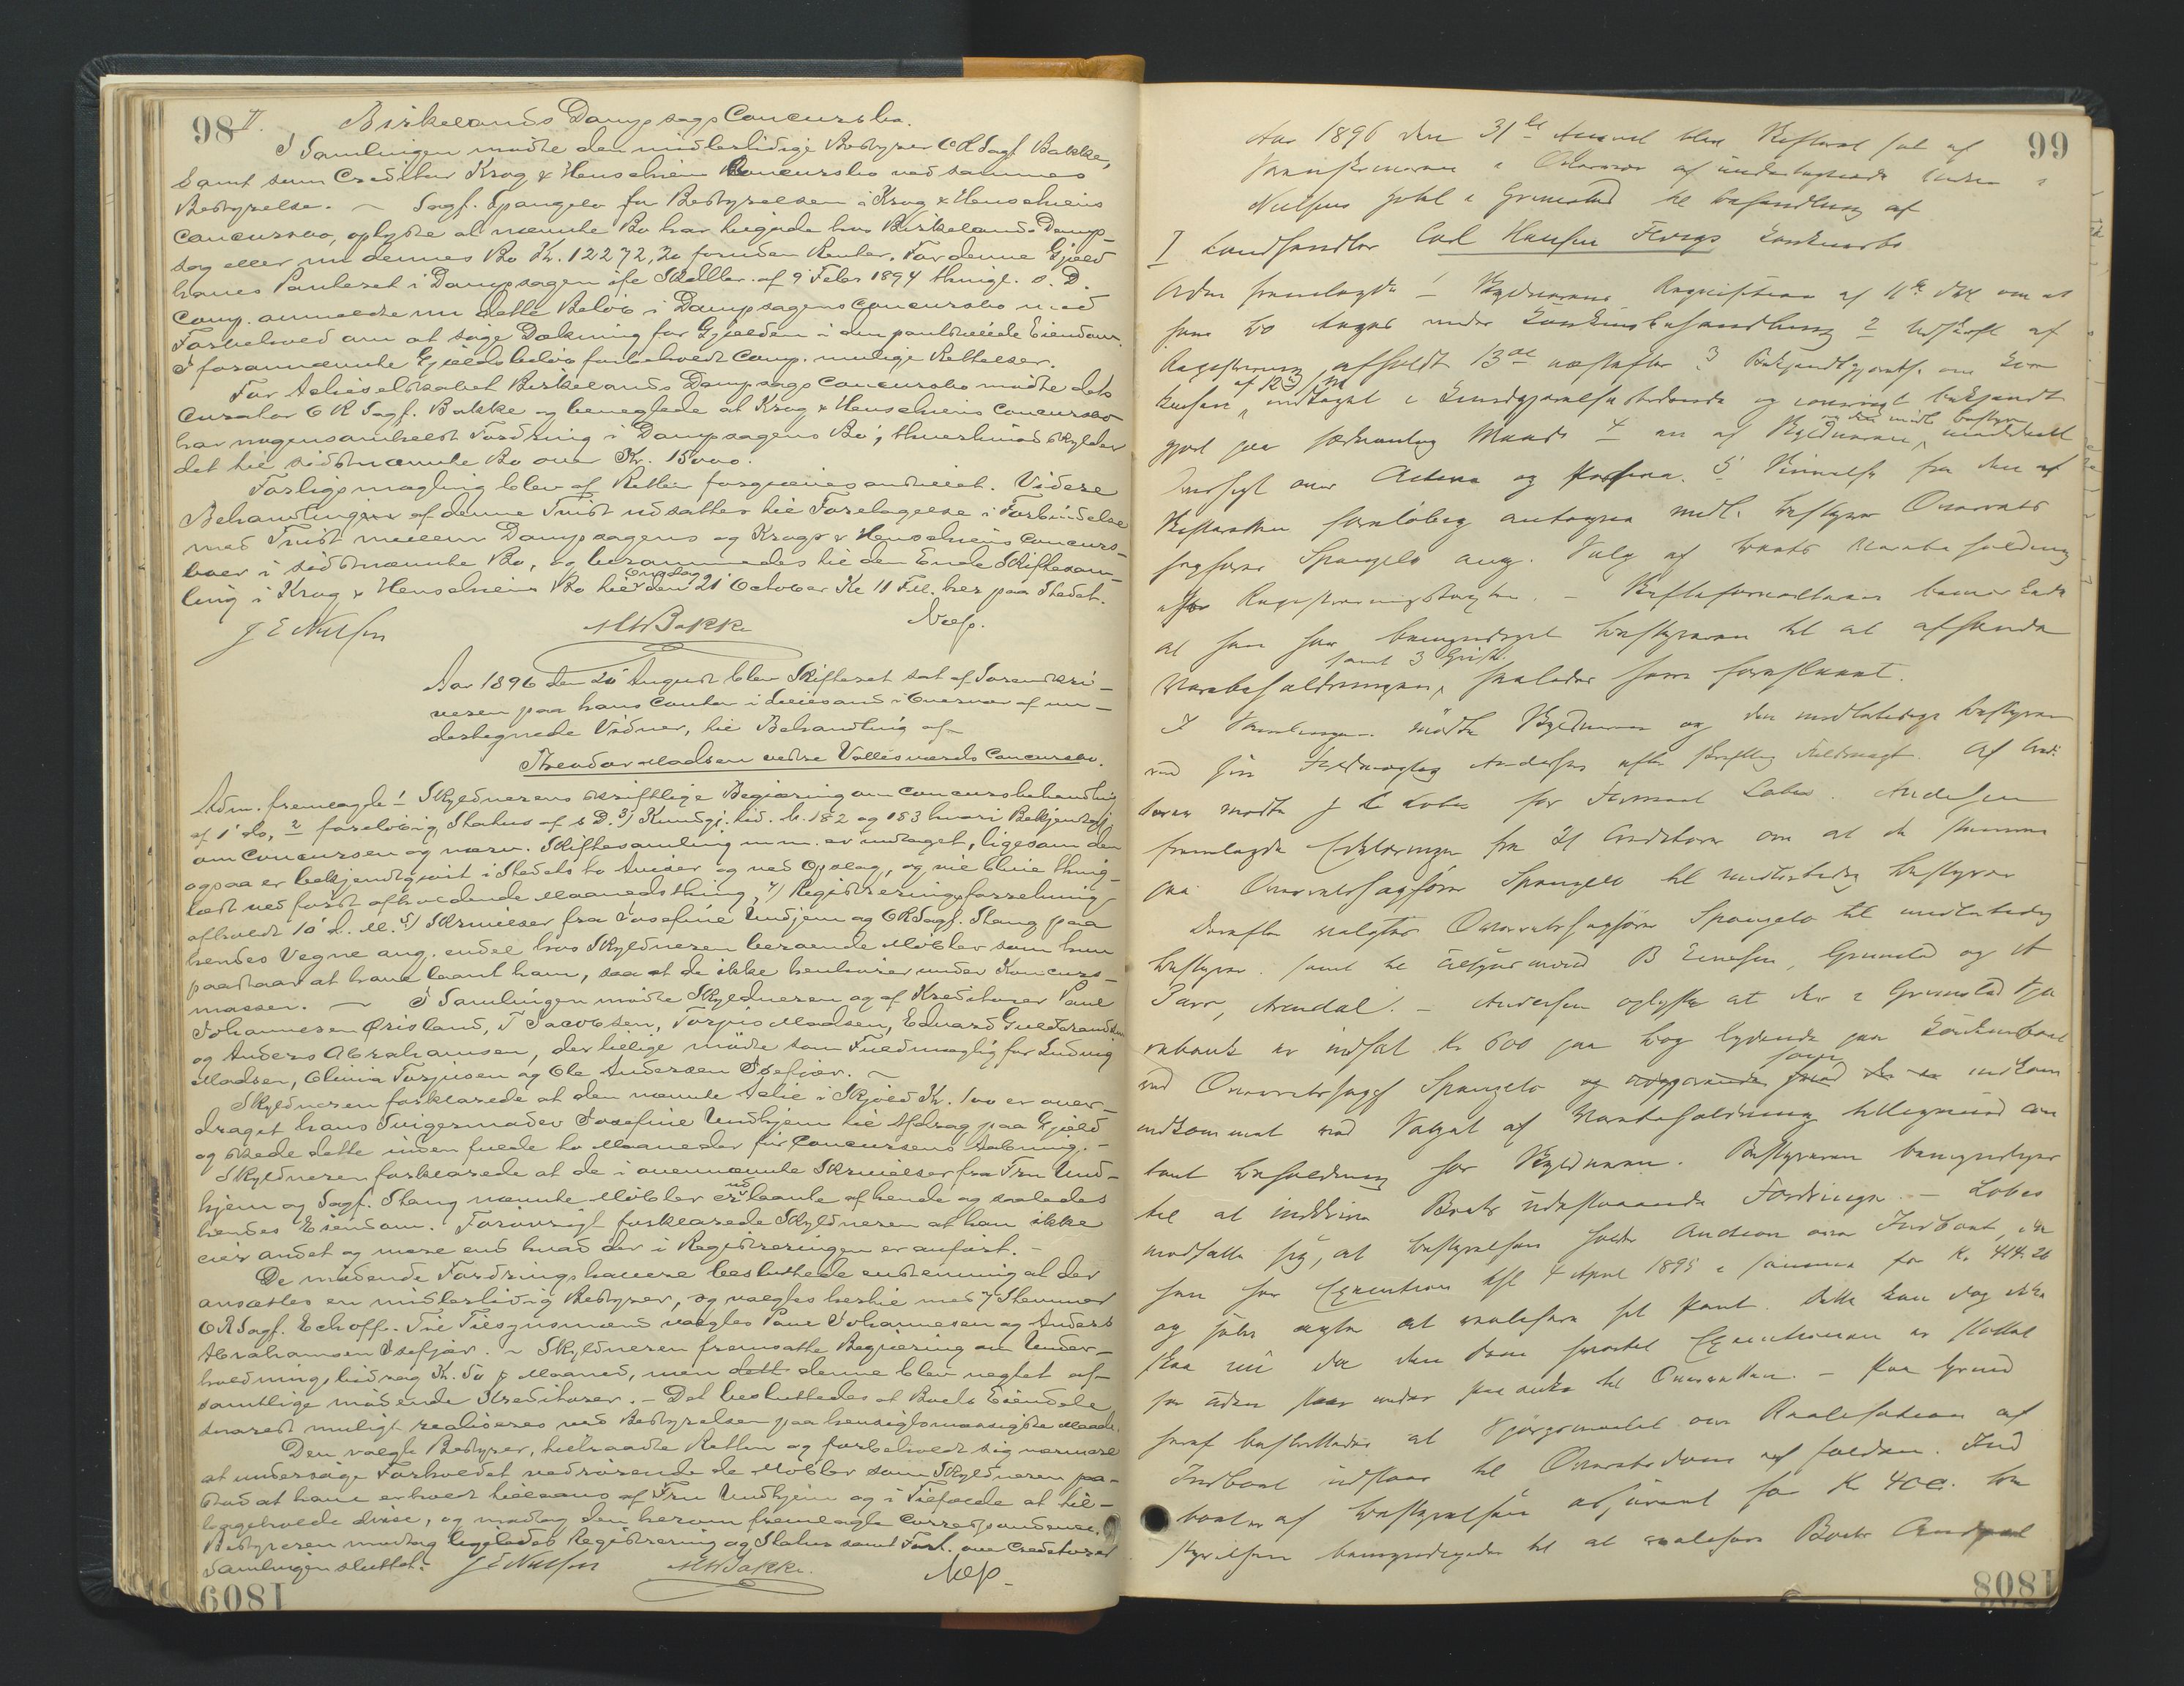 98 II. Birkelands Dampsags Concursbo.
I Samlingen mødte den midlertidige Bestyrer ORSagf. Bakke,
samt som Creditor Krog & Henschiens Concursbo ved sammes
Bestyrelse. — Sagf. Spangelo for Bestyrelsen i Krog & Henschiens
Concursbo, oplyste at nævnte Bo har tilgode hos Birkelands Damp-
sag eller nu dennes Bo Kr. 12272,20 foruden Renter. For denne Gjæld
haves Panteret i Dampsagen ifø Skdbr. af 9 Febr 1894 thingl. s. D.
Comp. anmeldte nu dette Beløb i Dampsagens Concursbo med
Forbehold om at søge Dækning for Gjælden i den pantsatte Eiendom.
I forannævnte Gjældsbeløb forbeholdt Comp. mulige Rettelser.
For Actieselskabet Birkelands Dampsags Concursbo mødte dets
Curator OR Sagf. Bakke og benegtede at Krog & Henschiens Concursbo
har nogensomhelst Fordring i Dampsagens Bo, thvertimod skylder
det til sidstnævnte Bo over Kr. 15000.
Forligsmægling blev af Retten forgjæves anstillet. Videre
Behandlingen af denne Tvist udsattes til Foretagelse i Forbindelse
med Tvist mellem Dampsagens og Krogs & Henschiens Concurs-
boer i sidstnævnte Bo, og berammedes til den Ende Skiftesam-
ling i Krog & Henschiens Bo til Onsdag den 21 October Kl 11 Fm. her paa Stedet.
J E Nielsen MWBakke Nep.
Aar 1896 den 20 August blev Skifteret sat af Sorenskri-
veren paa hans Contor i Lillesand i Overvær af un-
dertegnede Vidner, til Behandling af
Theodor Madsen vedre Vallesværds Concursbo.
Adm. fremlagde 1 Skyldnerens skriftlige Begjæring om Concursbehandling
af 1 ds, 2 foreløbig Status af s D. 3) Kundgj. tid. N. 182 og 183 hvori Bekjendtgj.
om Concursen og nærv. Skiftesamling m.m. er indtaget, ligesom den
ogsaa er bekjendtgjort i Stedets to Aviser og ved Opslag, og vil blive thing-
læst ved først afholdende Maanedsthing, 4) Registreringsforretning
afholdt 10 d. M. 5) Skrivelser fra Josefine Undhjem og ORSagf. Stang paa
hendes Vegne ang. endel hos Skyldneren beroende Møbler som hun
paastaar at have laant ham, saa at de ikke henhører under Koncurs-
massen. — I Samlingen mødte Skyldneren og af Kreditorer Paul
Johannesen Ørisland, T Jacobsen, Torjus Madsen, Edvard Guldbrandsen
og Anders Abrahamsen, der tillige mødte som Fuldmægtig for Ludvig
Madsen, Olivia Torjusen og Ole Andersen Isefjær. —
Skyldneren forklarede at den nævnte Actie i Skjold Kr. 100 er over-
draget hans Svigermoder Josefine Undhjem til Afdrag paa Gjæld
og skede dette inden fulde to Maaneder før Concursens Aabning. —
Skyldneren forklarede at de i ovennævnte Skrivelser fra Fru Und-
hjem og Sagf. Stang nævnte Møbler er udlaante af hende og saaledes
hendes Eiendom. Forøvrigt forklarede Skyldneren at han ikke
eier andet og mere end hvad der i Registreringen er anført. —
De mødende Fordringshavere besluttede enstemmig at der
ansættes en midlertidig Bestyrer, og valgtes hertil med 7 Stemmer
ORSagf. Eckhoff. Til Tilsynsmænd valgtes Paul Johannesen og Anders
Abrahamsen Isefjær. — Skyldneren fremsatte Begjæring om Under-
holdningsbidrag Kr. 50 p Maaned, men dett denne blev negtet af
samtlige mødende Kreditorer. — Det besluttedes at Boets Eiendele
snarest muligt realiseres ved Bestyrelsen paa hensigtsmæssigste Maade.
Den valgte Bestyrer, tiltraadte Retten og forbeholdt sig nærmere
at undersøge Forholdet vedrørende de Møbler som Skyldneren paa-
stod at have erholdt tillaans af Fru Undhjem og i Tilfælde at til-
bageholde disse, og modtog den herom fremlagte Correspondence.
Bestyreren modtog ligeledes Registrering og Status samt Fort. over Creditorer
Samlingen sluttet.
J E Nielsen MWBakke. Nep.
18081
99
Aar 1896 den 31te August blev Skifteret sat af
Sorenskriveren i Overvær af undertegnede Vidner i
Nielsens Hotel i Grimstad til Behandling af
I Landhandler Carl Hansen Konkursbo
Adm fremlagde 1 Skyldnerens Requisition af 11te ds om at
hans Bo tages under Konkursbehandling 2 Udskrift af
Registrering afholdt 13de næstefter 3 Bekjendtgjørelse om Kon
kursen indtaget i Kundgjørelsestidende og iøvrigt bekjendt
gjort paa sædvanlig Maade 4 en af Skyldneren og den midl bestyrer meddelt
Oversigt over Activa og Passiva. 5 Skrivelse fra den af
Skifteretten foreløbig antagne midl. Bestyrer Overrets
sagfører Spangelo ang. Salg af Boets Varebeholdning
efter Registreringstaxten. — Skifteforvalteren bemærkede
at han har bemyndiget Bestyreren til at afhænde
Varebeholdningen, samt 3 Grise. saaledes som foreslaaet.
I Samlingen mødte Skyldneren og den midlertidige Bestyrer
ved sin Fuldmægtig Andersen efter skriftlig Fuldmagt. Af Credi
torer mødte for Firmaet Lobes. Andersen
fremlagde Erklæringer fra 21 Creditorer om at de stemme
paa Overretssagfører Spangelo til midlertidig Bestyrer
Derefter valgtes Overretssagfører Spangelo til midlertidig
Bestyrer. samt til Tilsynsmænd B Evensen, Grimstad og
Arendal. — Andersen oplyste at der i Grimstad Spa
rebank er indsat Kr 600 paa Bog lydende paa Konkursboet
ved Overretssagf Spangelo som indkom
indkommet ved Salget af Varebeholdning tilligemed
tant Beholdning hos Skyldneren. Bestyreren bemyndiges
til at inddrive Boets udestaaende Fordringer. — Lobes
modsatte sig, at Bestyrelsen holder Auction over Indboet, da
han har Execution af 4 April 1895 i samme for Kr. 414.26
og selv agter at realisere sit Pant. Dette kan dog ikke
ske nu da den Dom hvorved Executionen er støttet
paa anke til Overretten. — Paa Grund
heraf besluttedes at Spørgsmaalet om Realisation af
Indboet udstaar til Overretsdom er falden. Ind
boet er af Bestyrelsen assureret for Kr 400. Be
styrelsen bemyndigedes til at realisere Boets
18081